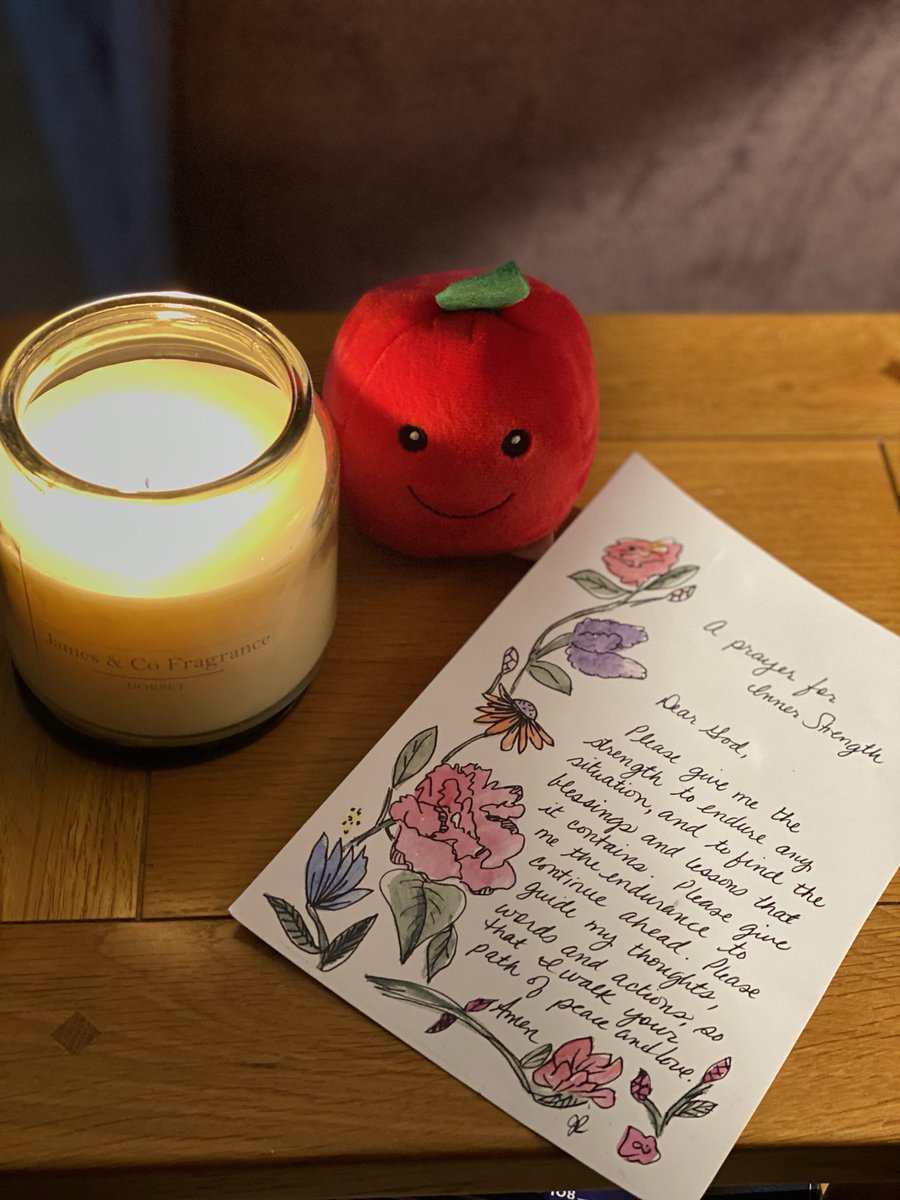 James & Co Fragrance
DORSET
A prayer for
Inner Strength
Dear God,
Please give me the
strength to endure any
situation, and to find the
blessings and lessons that
it contains. Please give
me the endurance to
continue ahead. Please
guide my thoughts,
words and actions, so
that I walk your
path of peace and love.
Amen
108